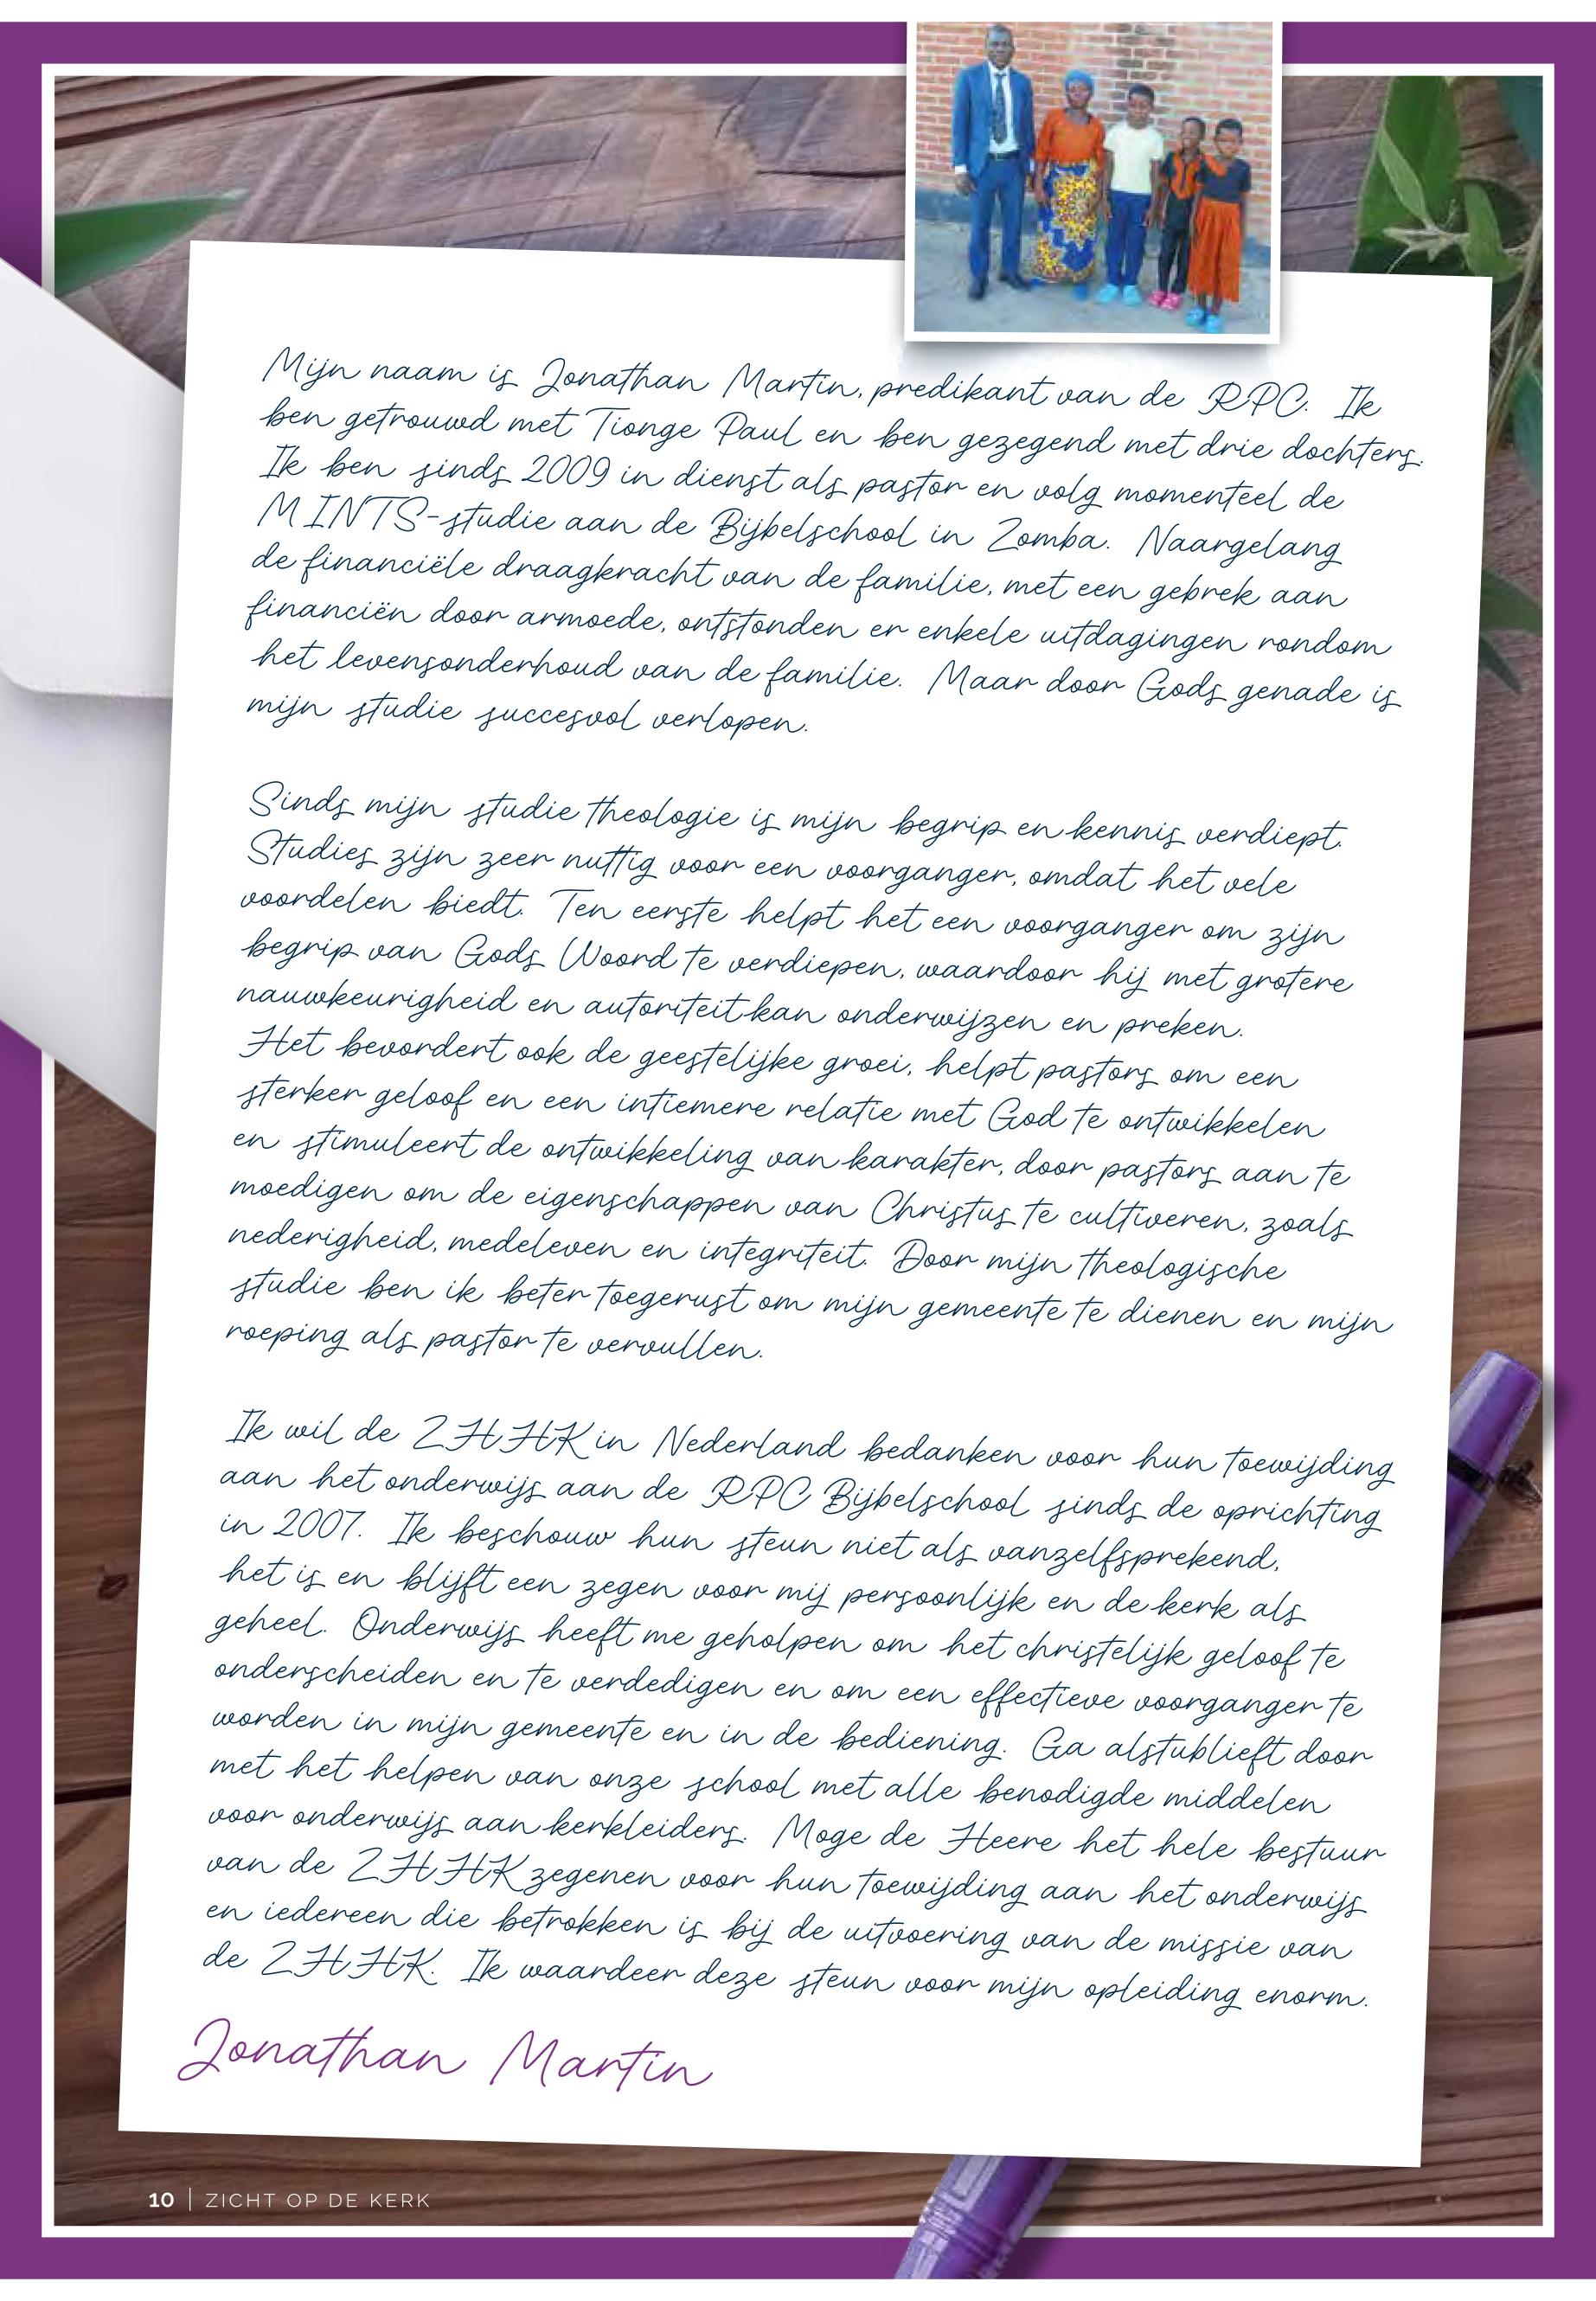 Mijn naam is Jonathan Martin, predikant van de RPC. Ik
ben getrouwd met Tionge Paul en ben gezegend met drie dochters.
Ik ben sinds 2009 in dienst als pastor en volg momenteel de
MINTS-studie aan de Bijbelschool in Zomba. Naargelang
de financiële draagkracht van de familie, met een gebrek aan
financiën door armoede, ontstonden er enkele uitdagingen rondom
het levensonderhoud van de familie. Maar door Gods genade is
mijn studie succesvol verlopen.
Sinds mijn studie theologie is mijn begrip en kennis verdiept.
Studies zijn zeer nuttig voor een voorganger, omdat het vele
voordelen biedt. Ten eerste helpt het een voorganger om zijn
begrip van Gods Woord te verdiepen, waardoor hij met grotere
nauwkeurigheid en autoriteit kan onderwijzen en preken.
Het bevordert ook de geestelijke groei, helpt pastors om een
sterker geloof en een intiemere relatie met God te ontwikkelen
en stimuleert de ontwikkeling van karakter, door pastors aan te
moedigen om de eigenschappen van Christus te cultiveren, zoals
nederigheid, medeleven en integriteit. Door mijn theologische
studie ben ik beter toegerust om mijn gemeente te dienen en mijn
roeping als pastor te vervullen.
Ik wil de ZHHK in Nederland bedanken voor hun toewijding
aan het onderwijs aan de RPC Bijbelschool sinds de oprichting
in 2007. Ik beschouw hun steun niet als vanzelfsprekend,
het is en blijft een zegen voor mij persoonlijk en de kerk als
geheel. Onderwijs heeft me geholpen om het christelijk geloof te
onderscheiden en te verdedigen en om een effectieve voorganger te
worden in mijn gemeente en in de bediening. Ga alstublieft door
met het helpen van onze school met alle benodigde middelen
voor onderwijs aan kerkleiders. Moge de Heere het hele bestuur
van de ZHHK zegenen voor hun toewijding aan het onderwijs
en iedereen die betrokken is bij de uitvoering van de missie van
de ZHHK. Ik waardeer deze steun voor mijn opleiding enorm.
Jonathan Martin
10 | ZICHT OP DE KERK